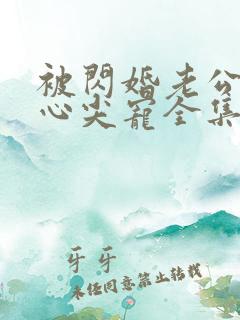 被閃婚老公
心尖寵全集
牙牙
未经同意禁止转载